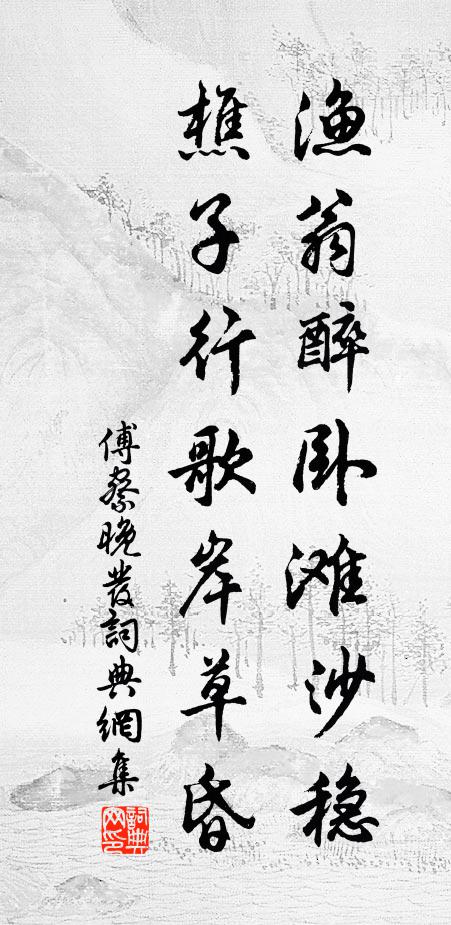 渔翁醉卧滩沙稳
樵子行歌岸草昏
傅察晚发詞典網集
詞典
网印